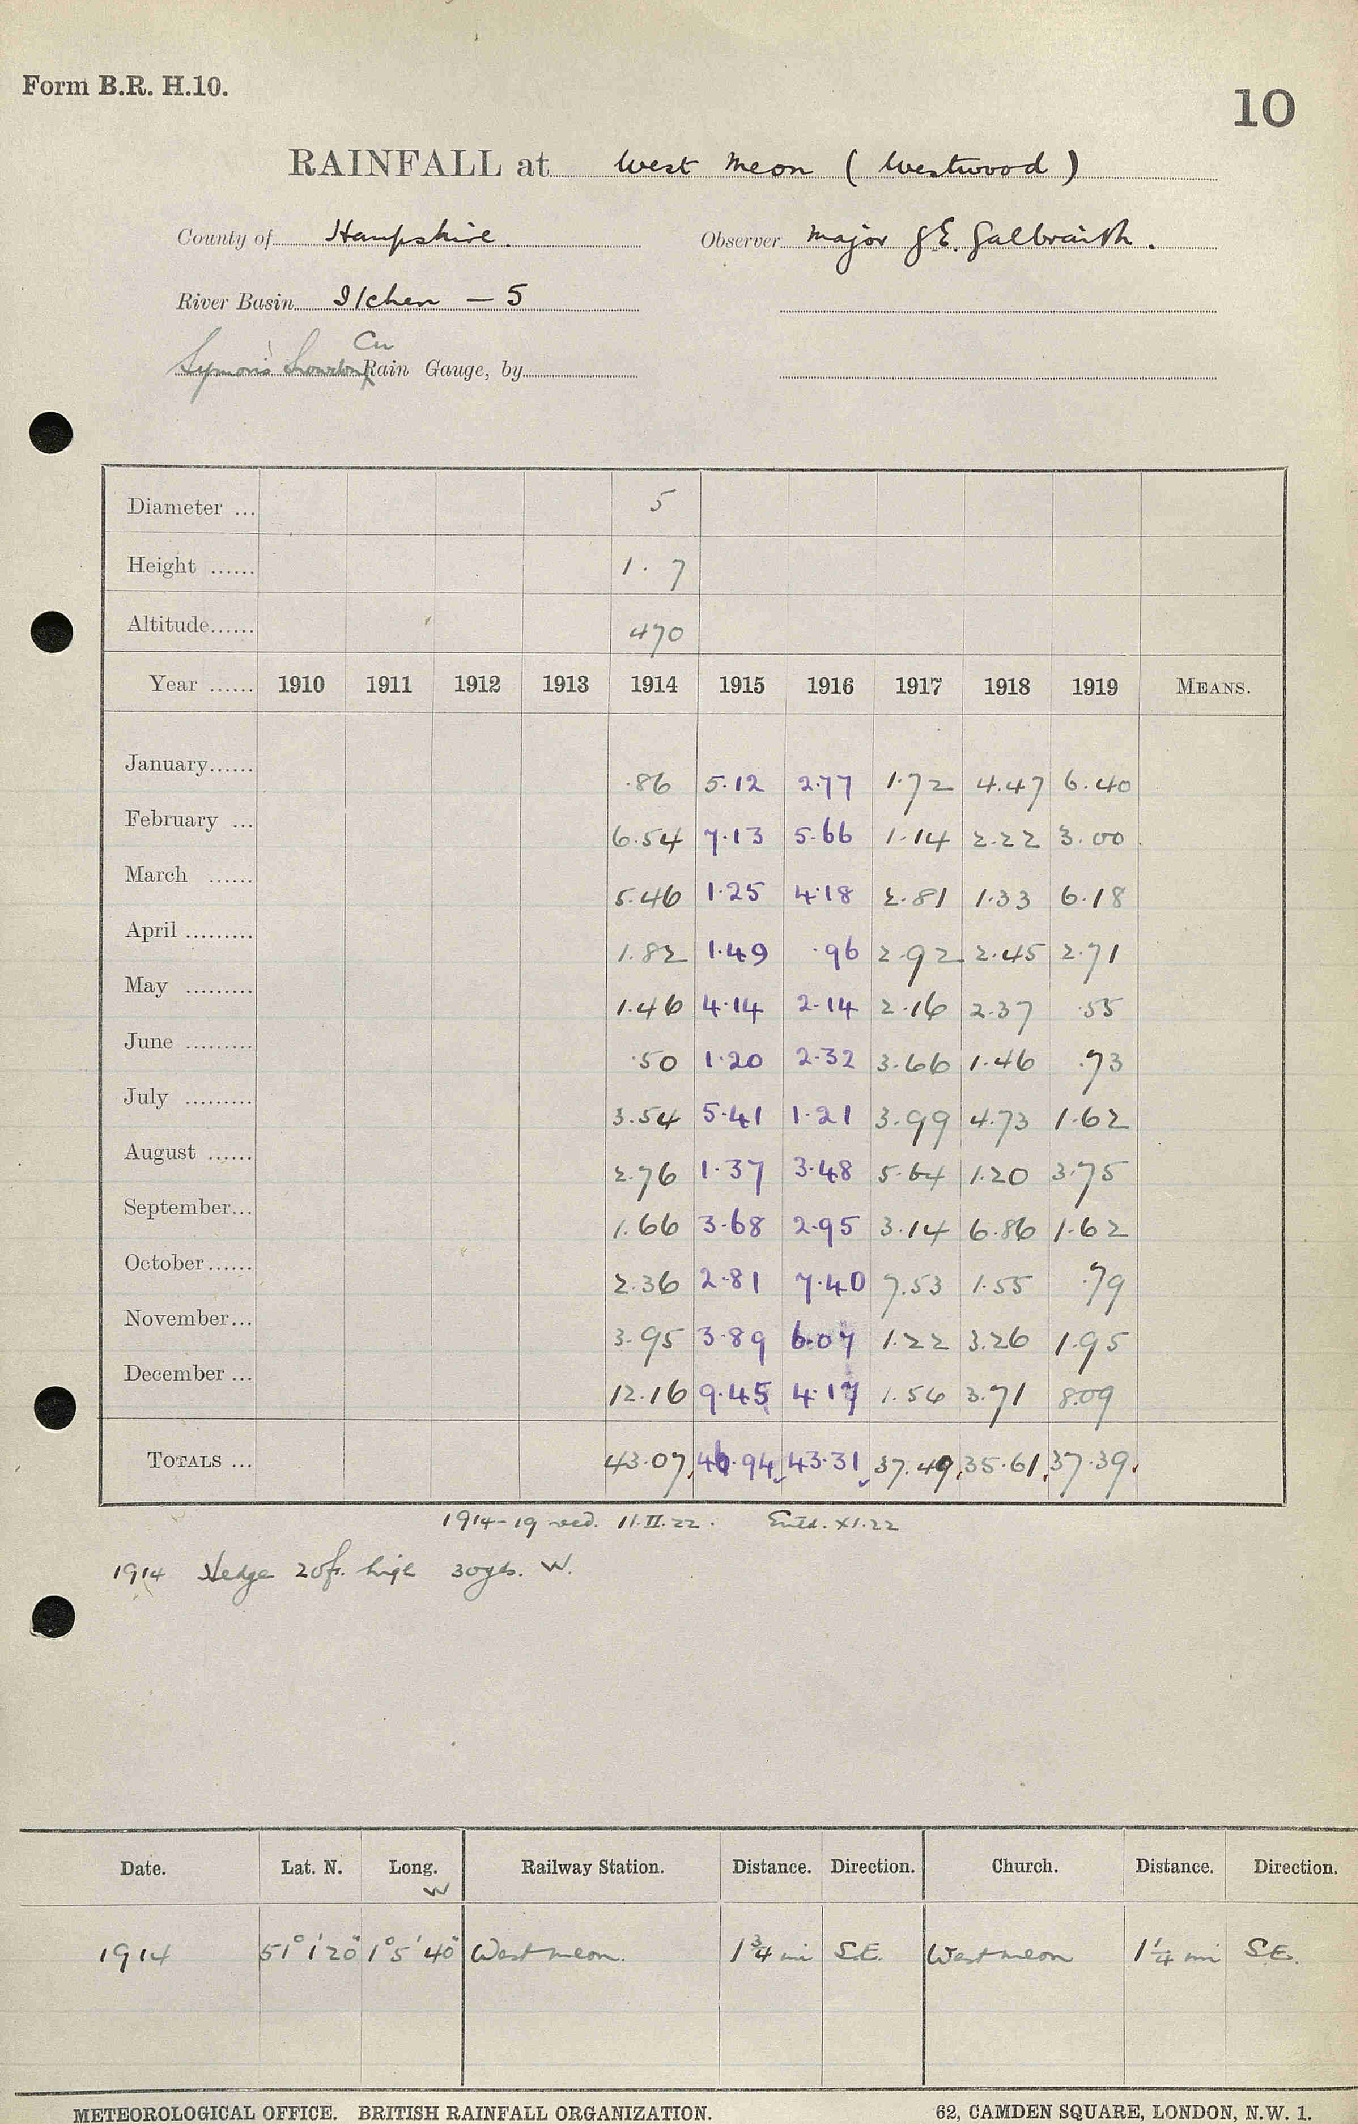 Form B.R. H.10.
10
RAINFALL at West Meon (Westwood)
County of Hampshire. Observer Major G.E. Galbraith.
River Basin Itchen — 5
Cu
Symons Snowdon Rain Gauge, by
Diameter ... 5
Height ...... 1. 7
Altitude...... 470
Year ...... 1910 1911 1912 1913 1914 1915 1916 1917 1918 1919 MEANS.
January...... .86 5.12 2.77 1.72 4.47 6.40
February ... 6.54 7.13 5.66 1.14 2.22 3.00
March ...... 5.46 1.25 4.18 2.81 1.33 6.18
April ......... 1.82 1.49 .96 2.92 2.45 2.71
May ......... 1.46 4.14 2.14 2.16 2.37 .55
June ......... .50 1.20 2.32 3.66 1.46 .73
July ......... 3.54 5.41 1.21 3.99 4.73 1.62
August ...... 2.76 1.37 3.48 5.64 1.20 3.75
September... 1.66 3.68 2.95 3.14 6.86 1.62
October...... 2.36 2.81 7.40 7.53 1.55 .79
November... 3.95 3.89 6.07 1.22 3.26 1.95
December ... 12.16 9.45 4.17 1.56 3.71 8.09
TOTALS ... 43.07 46.94 43.31 37.49 35.61 37.39
1914-19 recd. 11.II.22. Entd. XI.22
1914 Hedge 20ft. high 30yds. W.
Date. Lat. N. Long. W Railway Station. Distance. Direction. Church. Distance. Direction.
1914 51° 1' 20" 1° 5' 40" Westmeon. 1 3/4 mi S.E. Westmeon 1 1/4 mi S.E.
METEOROLOGICAL OFFICE. BRITISH RAINFALL ORGANIZATION. 62, CAMDEN SQUARE, LONDON, N.W. 1.